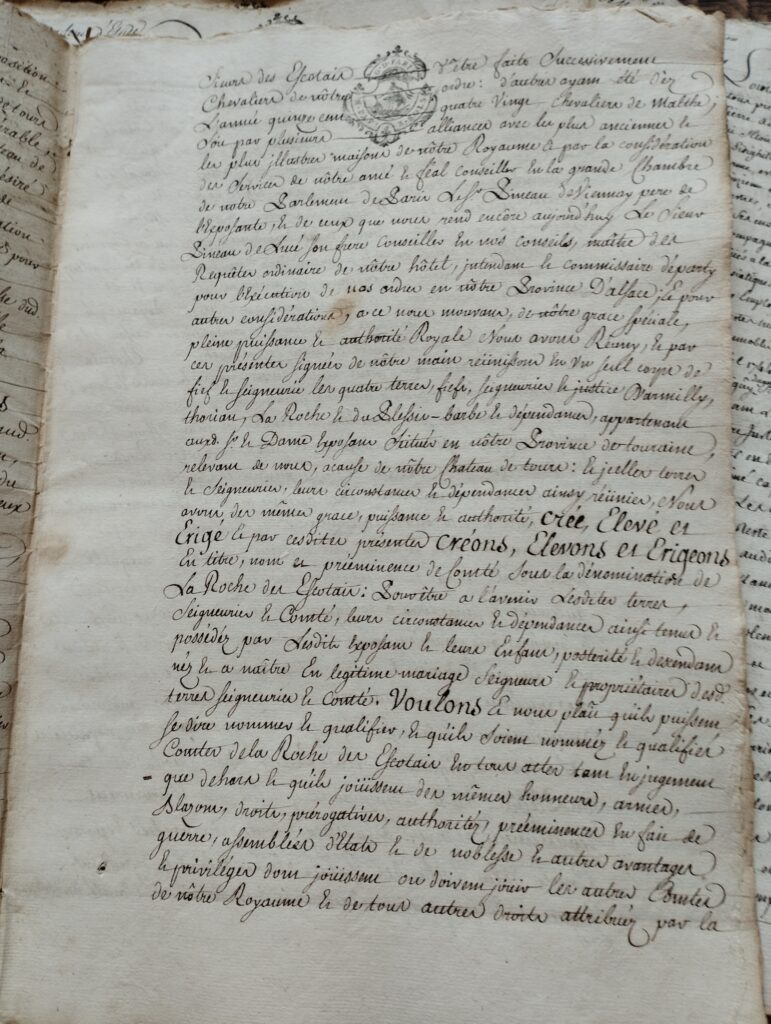 Sieurs des Escotais d'être faits Successivement
Chevaliers de nôtre ordre: d'autres ayant été dez
L'année quinze cent quatre Vingt Chevaliers de Malthe,
Soit par plusieurs alliances avec les plus anciennes et
les plus illustres maisons de nôtre Royaume et par la considération
des Services de nôtre amé et féal conseiller en la grande Chambre
de notre Parlement de Paris Led. Sr. Pineau de Viennay pere de
l'Exposante, et de ceux que nous rend encore aujourd'huy Le Sieur
Pineau de Lucé son frere Conseiller en nos conseils, maître des
Requêtes ordinaire de nôtre hôtel, intendant et commissaire départy
pour l'Exécution de nos ordres en nôtre Province D'alsace, Et pour
autres considérations, a ce nous mouvans, de nôtre grace spéciale,
pleine puissance et authorité Royale Nous avons Réuny, et par
ces présentes signées de nôtre main réünissons en un seul corps de
fief et seigneurie les quatre terres, fiefs, seigneuries et justice D'armilly,
thoriau, La Roche et du Plessis-barbe et dépendances, appartenant
auxd. Sr. et Dame Exposans Situés en nôtre Province de touraine,
relevant de nous, acause de nôtre Chateau de tours: et icelles terres
et Seigneuries, leurs circonstances et dépendances ainsy réünies, Nous
avons des mêmes grace, puissance et authorité, créé, Elevé et
Erigé et par cesdites présentes créons, Elevons et Erigeons
En titre, nom et prééminence de Comté sous la dénomination de
La Roche des Escotais: Pour être a l'avenir Lesdites terres,
Seigneuries et Comté, leurs circonstances et dépendances ainsi tenus et
possédéz par Lesdits Exposans et leurs Enfans, postérité et descendans
néz et a naître En legitime mariage Seigneurs et propriétaires desd.
terres seigneuries et Comté. Voulons Et nous plaît quils puissent
se dire nommer et qualifier, et quils soient nomméz et qualifiés
Comtes dela Roche des Escotais En tous actes tant En jugement
que dehors et quils joüissent des mêmes honneurs, armes,
Blazons, droits, prérogatives, authorités, prééminences En fait de
guerre, assemblées d'Etats et de noblesse et autres avantages
et privilèges dont joüissent ou doivent joüir les autres Comtes
de nôtre Royaume et de tous autres droits attribuéz par la